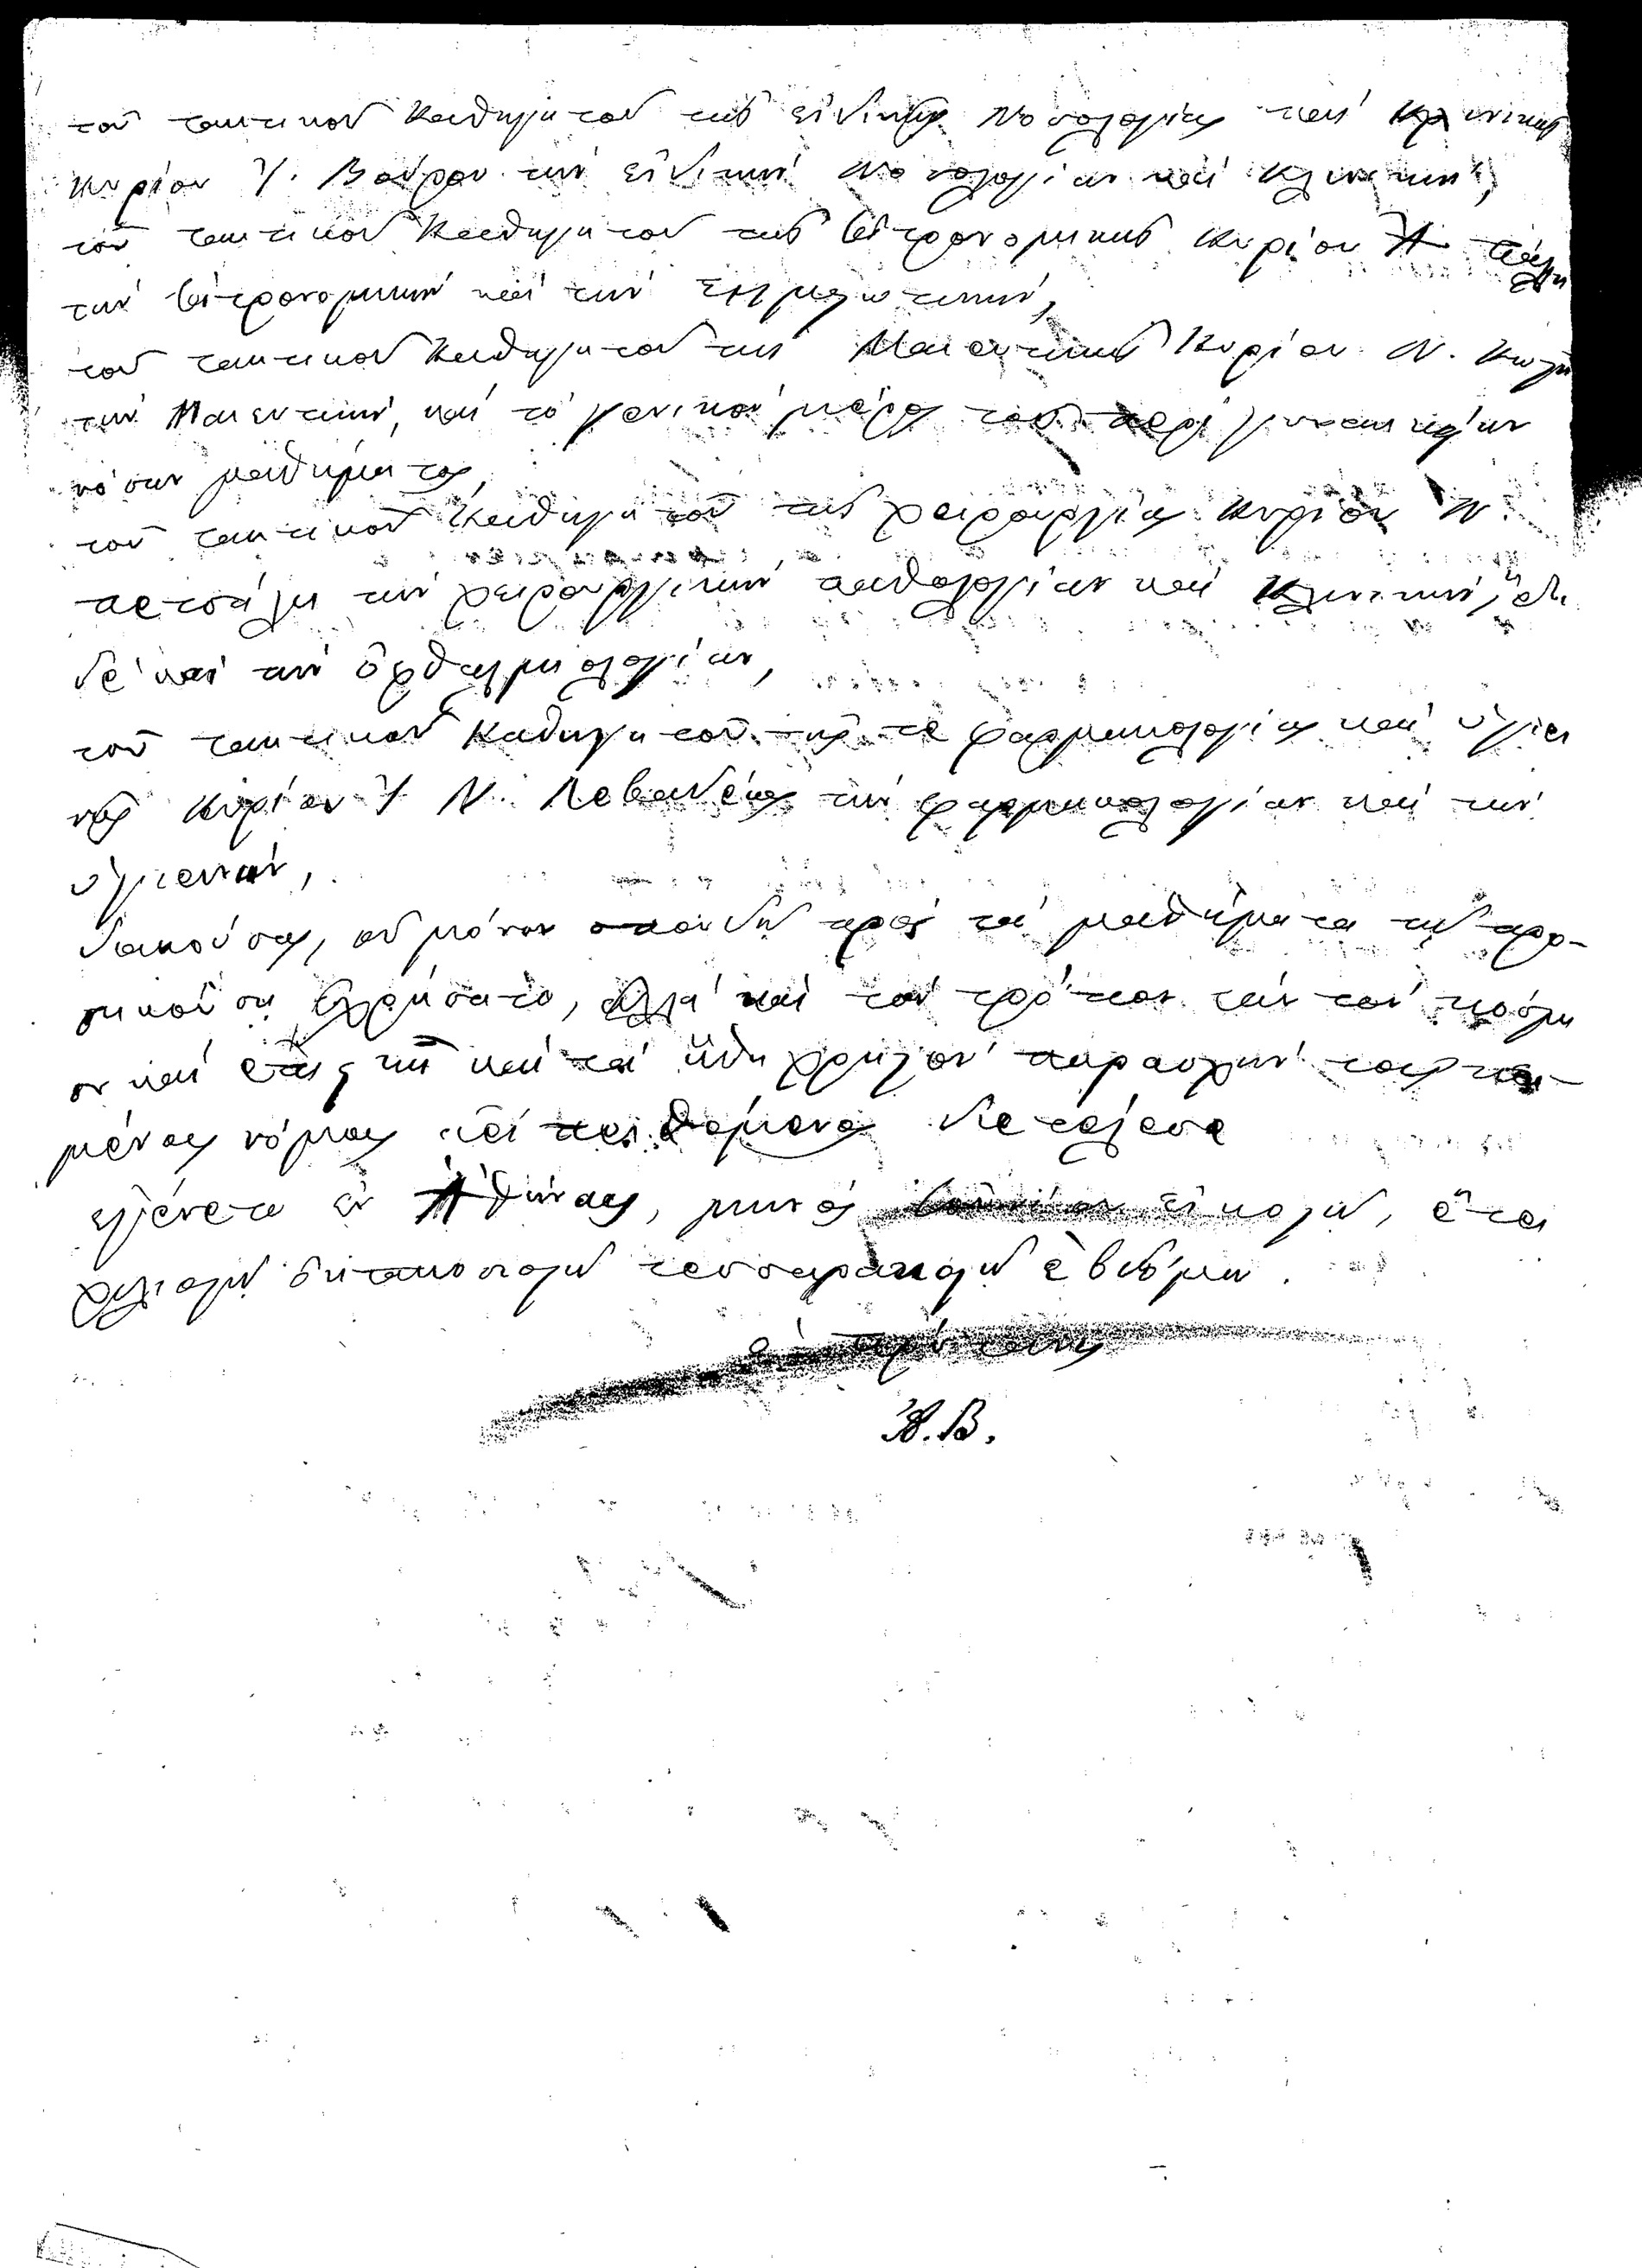 τοῦ τακτικοῦ Καθηγητοῦ τῆς εἰδικῆς Νοσολογίας καὶ Κλινικῆς
Κυρίου Ἰ. Βούρου τὴν εἰδικὴν Νοσολογίαν καὶ Κλινικὴν,
τοῦ τακτικοῦ Καθηγητοῦ τῆς ἰατρονομικῆς Κυρίου Ἀ Πάλλη
τὴν ἰατρονομικὴν καὶ τὴν
τοῦ τακτικοῦ Καθηγητοῦ τῆς Μαιευτικῆς Κυρίου Ν. Κωστῆ
τὴν Μαιευτικὴν, καὶ τὸ γενικὸν μέρος τοῦ περὶ γυναικείων
νόσων μαθήματος,
τοῦ τακτικοῦ Καθηγητοῦ τῆς χειρουργίας Κυρίου Ν.
Πετσάλη τὴν χειρουργικὴν παθολογίαν καὶ Κλινικὴν, ἔτι
δὲ καὶ τὴν ὀφθαλμολογίαν,
τοῦ τακτικοῦ Καθηγητοῦ τῆς τε φαρμακολογίας καὶ ὑγιει
νῆς Κυρίου Ἰ Ν. Λεβαδέως τὴν φαρμακολογίαν καὶ τὴν
ὑγιεινὴν,
διακούσας, οὐ μόνον σπουδῇ πρὸς τὰ μαθήματα τῇ προ-
σηκούσῃ ἐχρήσατο, ἀλλὰ καὶ τὸν τρόπον κόσμι
ον καὶ καὶ τὰ ἤθη χρηστὸν παρασχὼν τοῖς κει-
μένοις νόμοις ἀεὶ πειθόμενος διετέλεσε
ἐγένετο ἐν Ἀθήναις, μηνὸς Ἰουνίου εἰκοστῇ, ἔτει
χιλιοστῷ ὀκτακοσιοστῷ τεσσαρακοστῷ ἑβδόμῳ.
ὁ πρύτανις